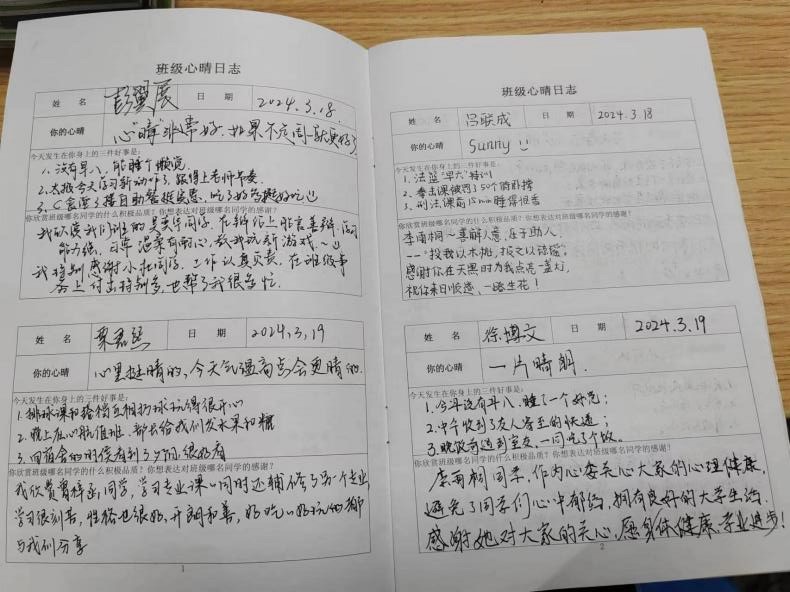 班级心晴日志
姓 名 彭翼展 日 期 2024.3.18.
你的心晴 心“晴”非常好，如果不是周一就更好了
今天发生在你身上的三件好事是：
1. 没有早八，能睡个懒觉
2. 太极今天学习新动作了，跟得上老师节奏
3.
你欣赏班级哪名同学的什么积极品质？你想表达对班级哪名同学的感谢？
能力强，日常温柔有耐心，教我玩新游戏~
我特别感谢小杜同学，工作认真负责，在班级事
务上付出特别多，也帮了我很多忙.
姓 名 日 期 2024.3.19
你的心晴 心里挺晴的，今天气温高点会更晴
今天发生在你身上的三件好事是：
1. 排球课和搭档互相扔球玩得很开心
2. 晚上在心航值班，部长给我们发水果和糖
3.
你欣赏班级哪名同学的什么积极品质？你想表达对班级哪名同学的感谢？
我欣赏 同学，学习专业课的同时还辅修了另一个专业
学习很刻苦，性格也很好，开朗和善，好吃的好玩的都
与我们分享
1
班级心晴日志
姓 名 吕联成 日 期 2024.3.18
你的心晴 Sunny
今天发生在你身上的三件好事是：
1. 法篮“早六”特训
2. 拳击课被罚50个俯卧撑
3. 刑法课前15min睡得很香
你欣赏班级哪名同学的什么积极品质？你想表达对班级哪名同学的感谢？
李雨桐~善解人意，乐于助人
——“投我以木桃，报之以琼瑶”
感谢你在天黑时为我点亮一盏灯，
祝你来日悠悠，一路生花！
姓 名 徐博文 日 期 2024.3.19
你的心晴 一片晴朗.
今天发生在你身上的三件好事是：
1. 今早没有早八，睡了一个好觉；
2. 中午收到了友人寄至的快递；
3. 晚饭偶遇到室友，一同吃了个饭。
你欣赏班级哪名同学的什么积极品质？你想表达对班级哪名同学的感谢？
李雨桐同学，作为心委关心大家的心理健康，
避免了同学们心中郁结，拥有良好的大学生活.
感谢她对大家的关心，愿身体健康，学业进步！
2